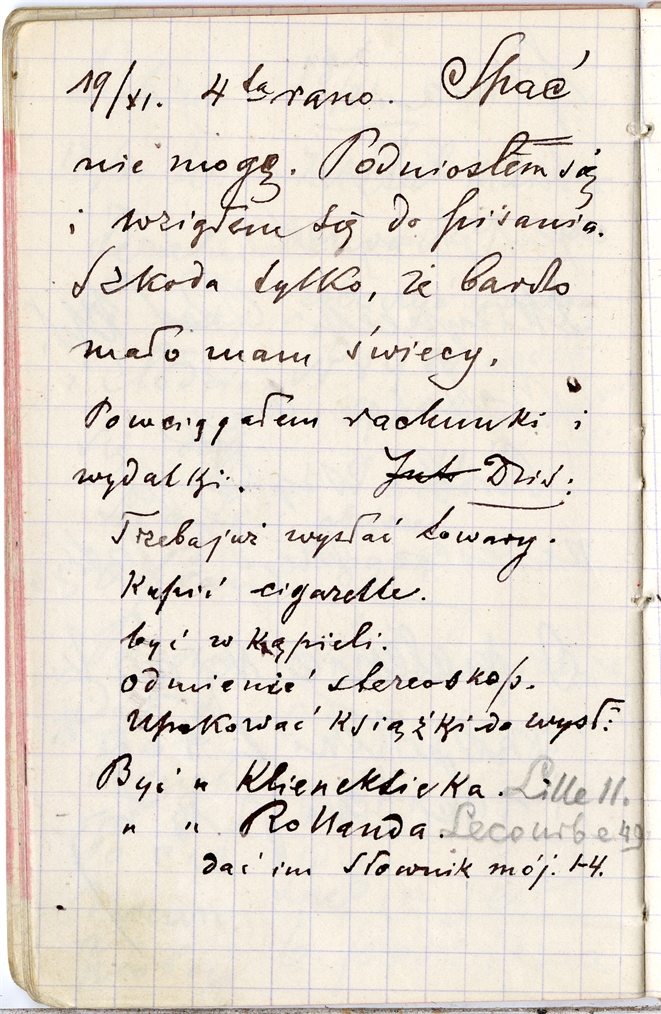 19/XI. 4ta rano. Spać
nie mogę. Podniosłem się
i wziąłem się do pisania.
Szkoda tylko, że bardo
mało mam świecy.
Powciągałem rachunki i
wydatki. Jut Dziś:
Trzeba już wysłać towary.
Kupić cigarette.
być w kąpieli.
odmienić stereoskop.
Upakować książki do wysł:
Być u . Lille 11.
" " Rollanda. Lecombe 49
dać im słownik mój. 1-4.